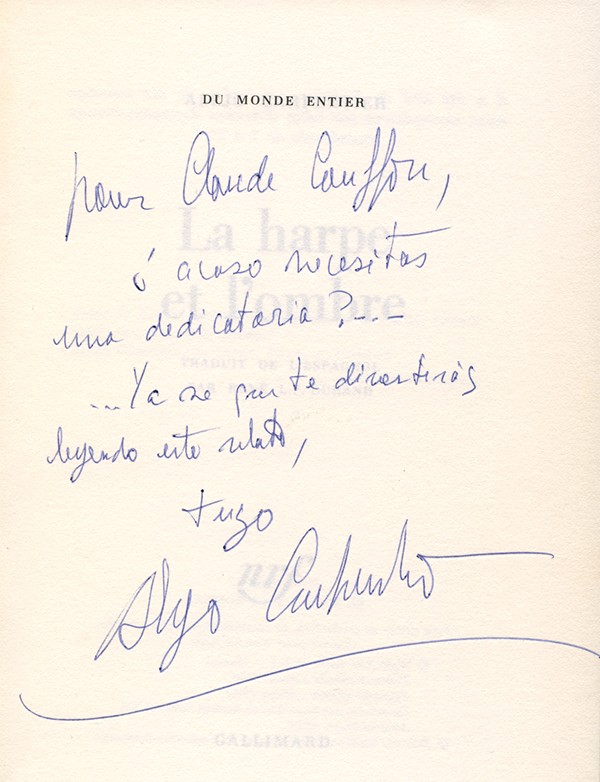 DU MONDE ENTIER
pour Claude Couffon,
ó acaso necesitas
una dedicatoria?---
...Ya se que te divertirás
leyendo este relato,
tuyo
Alejo Carpentier
La harpe
et l'ombre
TRADUIT DE L'ESPAGNOL
nrf
GALLIMARD